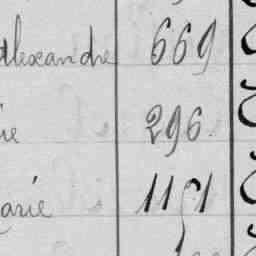 Alexandre 669
ie 296
arie 1151